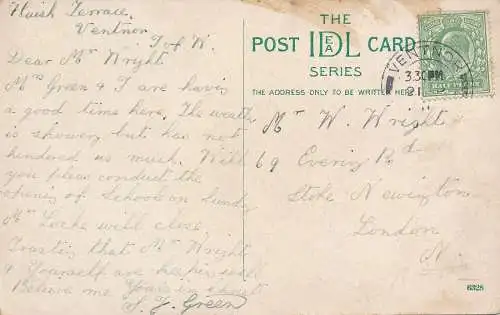 Huish Terrace,
Ventnor
I of W.
Dear Mr Wright.
Mrs Green & I are having
a good time here. The weather
is showery but has not
hindored us much. Will
you pleas conduct the
opening of School on Sunday
Mr Locke will close.
Trusting that Mrs Wright
& Yourself are keeping well
Believe me Yours in Christ
S. J. Green
THE
POST IDEAL CARD
SERIES
THE ADDRESS ONLY TO BE WRITTEN HERE
VENTNOR
3.30PM
21
HALF PENNY
Mr W. Wright
69 Evering Rd
Stoke Newington
London
N.
6328